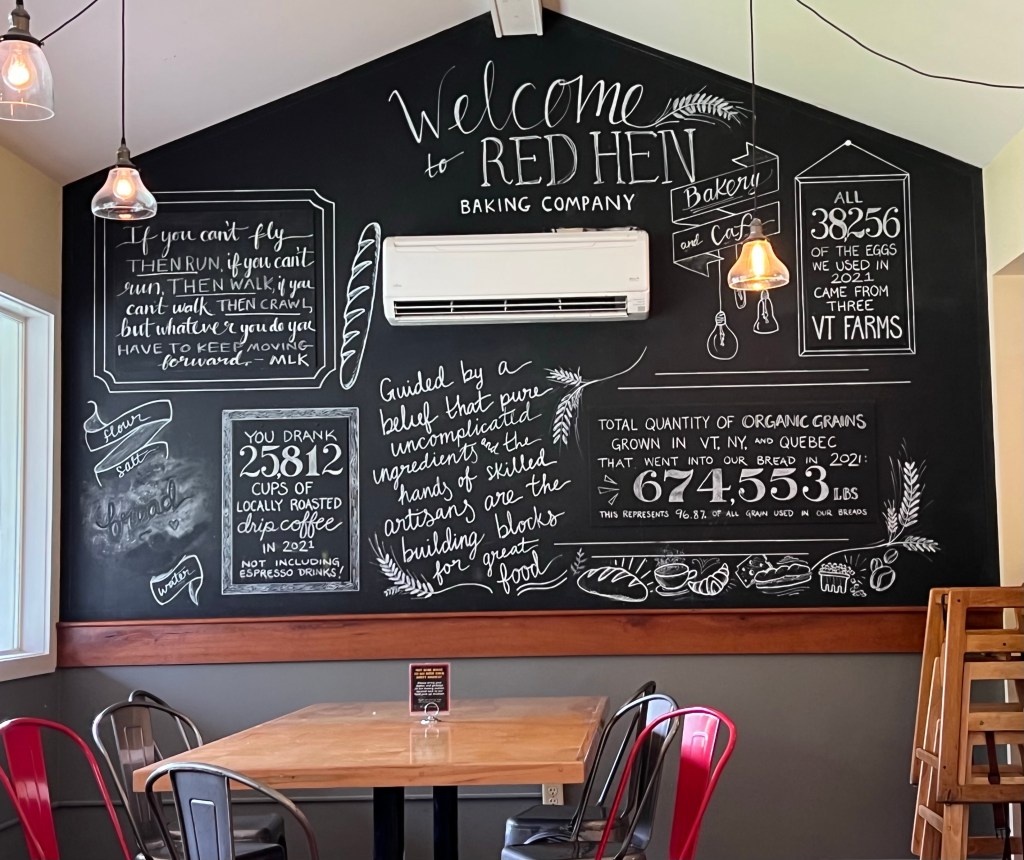 Welcome
to RED HEN
BAKING COMPANY
Bakery
and Cafe
ALL
38,256
OF THE EGGS
WE USED IN
2021
CAME FROM
THREE
VT FARMS
If you can't fly
THEN RUN, if you can't
run, THEN WALK, if you
can't walk THEN CRAWL,
but whatever you do you
HAVE TO KEEP MOVING
forward. - MLK
flour
salt
bread
water
YOU DRANK
25812
CUPS OF
LOCALLY ROASTED
drip coffee
IN 2021
NOT INCLUDING
ESPRESSO DRINKS!
Guided by a
belief that pure
uncomplicated
ingredients and the
hands of skilled
artisans are the
building blocks
for great
food
TOTAL QUANTITY OF ORGANIC GRAINS
GROWN IN VT, NY, AND QUEBEC
THAT WENT INTO OUR BREAD IN 2021:
674,553 LBS
THIS REPRESENTS 96.8% OF ALL GRAIN USED IN OUR BREADS